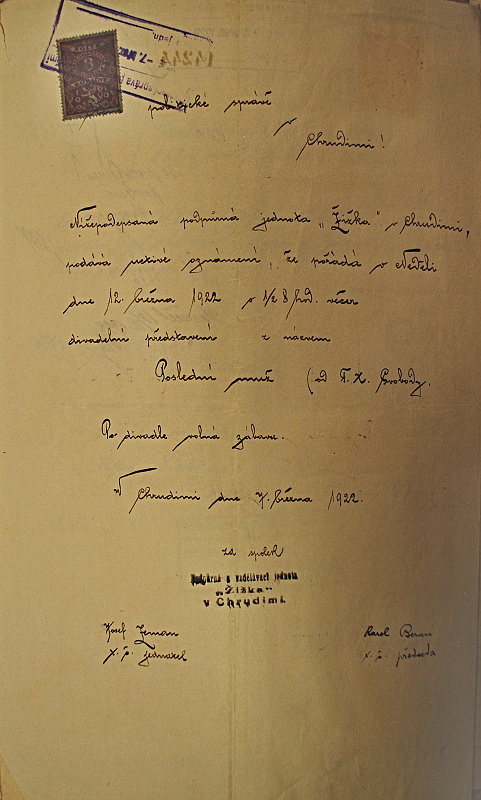 politické správě
v
Chrudimi!
Nížepodepsaná podpůrná jednota „Žižka" v Chrudimi,
podává uctivé oznámení, že pořádá v Neděli
dne 12. března 1922 o 1/2 8 hod. večer
divadelní představení z názvem
Poslední muž (od F. X. Svobody.
Po divadle volná zábava.
V Chrudimi dne 7. března 1922.
za spolek
Podpůrná a vzdělávací jednota
„Žižka"
v Chrudimi.
Josef Zeman
t. č. jednatel
Karel Beran
t. č. předseda